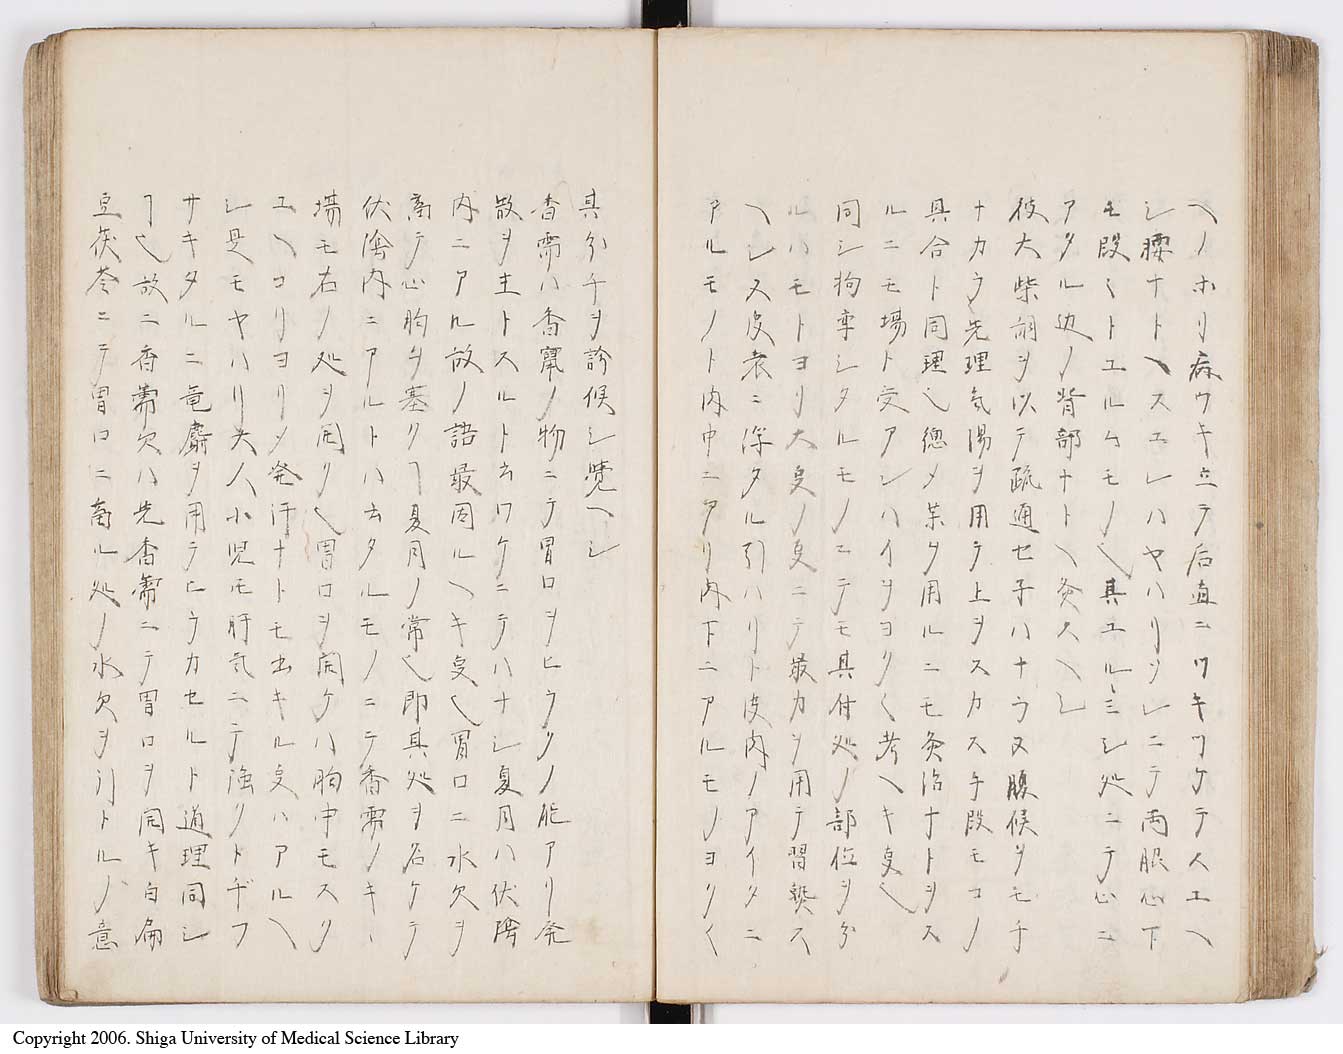 ヘノホリ痛ウキ立テ后直ニツキツケテスエヘ
シ腰ナトヘスエレハヤハリソレニテ両眼心下
モ段ミトユルムモノ也其ユルミシ処ニテ心ニ
アタル辺ノ背部ナトヘ灸スヘシ
彼大柴胡ヲ以テ疏通セ子ハナラヌ腹候ヲモチ
ナカラ先理気湯ヲ用テ上ヲスカス手段モコノ
具合ト同理也總メ薬タ用ルニモ灸治ナトヲス
ルニモ場ト变アレハイヲヨリく考ヘキ变也
同シ拘挛シタルモノニテモ其付処ノ部位ヲ分
ルハモトヨリ大变ノ变ニテ最力ヲ用テ習熟ス
ヘシ又皮表ニ深タル引ハリト皮内ノアイタニ
アルモノト内中ニアリ内下ニアルモノヨリく
其分チヲ診候シ覚ヘシ
香薷ハ香竄ノ物ニテ胃口ヲヒラクノ能アリ発
散ヲ主トスルト云ワケニテハナシ夏月ハ伏陰
内ニアル故ノ語最固ルヘキ变也胃口ニ水欠ヲ
畜テ心胸ヲ塞クヿ夏月ノ常也即其処ヲ名ケテ
伏陰内ニアルトハ云タルモノニテ香薷ノキヽ
場モ右ノ処ヲ開ク也胃口ヲ開ケハ胸中モスク
ユヘコリヨリメ発汗ナトモ出キル变ハアルヘ
シ是モヤハリ大人小児モ肝気ニテ強クトヂフ
サキタルニ竜麝ヲ用テヒラカセルト道理同シ
ヿ也故ニ香薷欠ハ先香薷ニテ胃口ヲ開キ白扁
豆茯苓ニテ胃口ニ畜ル処ノ水欠ヲ引トルノ意
Copyright 2006. Shiga University of Medical Science Library